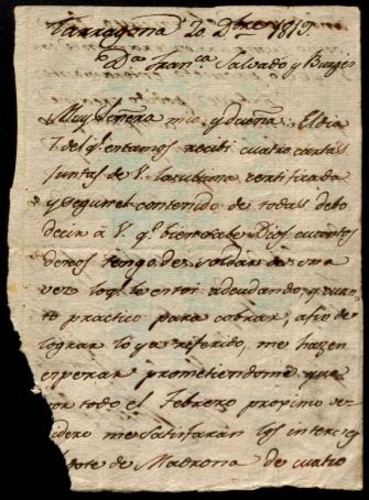 Tarragona 20 Dbre 1819.
Da. Franca. Salvado y Burges
Muy Señora mia y dueña. El dia
7 del q. estamos recibi cuatro cartas
juntas de V. la ultima certificada
y segun el contenido de todas debo
decir à V. q. bien sabe Dios cuantos
deseos tengo de soldar de una
vez lo q. le estoi adeudando, y cuan-
to practico para cobrar, afin de
lograr lo ya referido, me hazen
esperar prometiendome que
por todo el Febrero proximo ve-
nidero me satisfaran los interes
dote de Madrona de cuatro